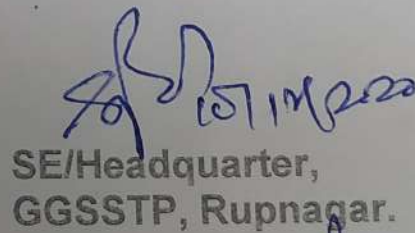 SE/Headquarter,
GGSSTP, Rupnagar.